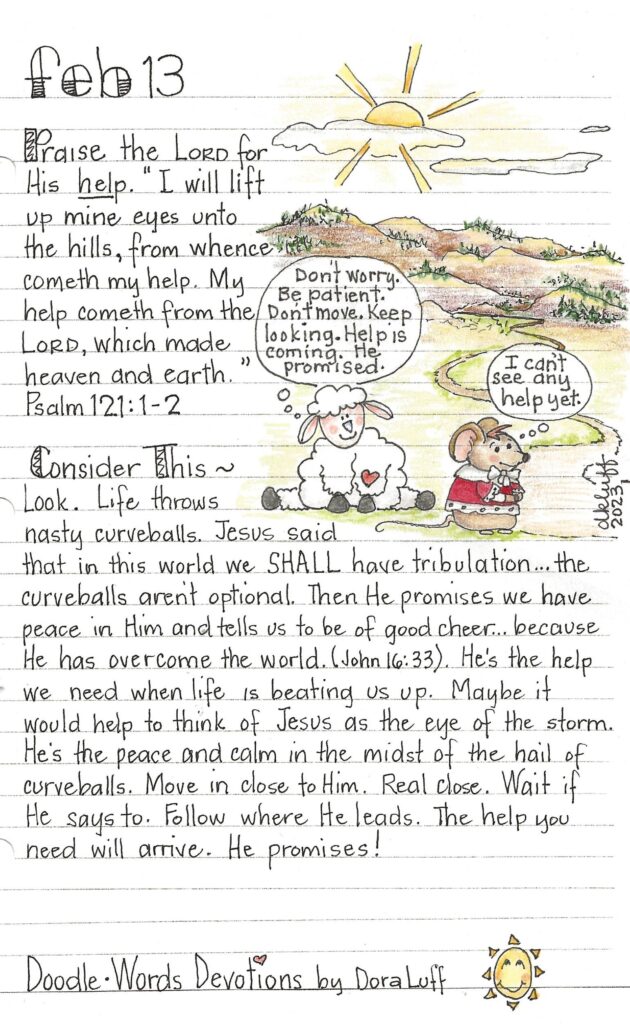 feb 13
Praise the LORD for
His help. "I will lift
up mine eyes unto
the hills, from whence
cometh my help. My
help cometh from the
LORD, which made
heaven and earth."
Psalm 121:1-2
Don't worry.
Be patient.
Don't move. Keep
looking. Help is
coming. He
promised.
I can't
see any
help yet.
dkluff
2023
Consider This ~
Look. Life throws
nasty curveballs. Jesus said
that in this world we SHALL have tribulation... the
curveballs aren't optional. Then He promises we have
peace in Him and tells us to be of good cheer... because
He has overcome the world. (John 16:33). He's the help
we need when life is beating us up. Maybe it
would help to think of Jesus as the eye of the storm.
He's the peace and calm in the midst of the hail of
curveballs. Move in close to Him. Real close. Wait if
He says to. Follow where He leads. The help you
need will arrive. He promises!
Doodle·Words Devotions by Dora Luff